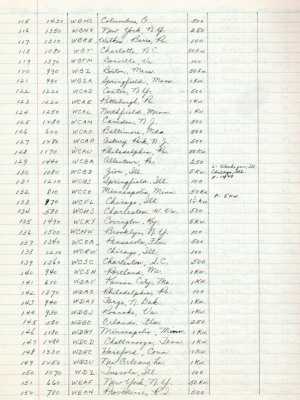 115 1430 WBNS Columbus, O. 500
116 1350 WBNY New York, N.Y. 250
117 1310 WBRE Wilkes Barre, Pa. 100
118 1080 WBT Charlotte, N.C. 50KW
119 1370 WBTM Danville, Va. 100
120 990 WBZ Boston, Mass 50KW
121 990 WBZA Springfield, Mass 1KW
122 1220 WCAD Canton, N.Y. 500
123 1220 WCAE Pittsburgh, Pa. 1KW
124 1250 WCAL Northfield, Minn 1KW
125 1280 WCAM Camden, N.J. 500
126 600 WCAO Baltimore, Md
127 1280 WCAP Asbury Park N.J. 500
128 1170 WCAU Philadelphia, Pa.
129 1440 WCBA Allentown, Pa. 250
130 1080 WCBD Zion, Ill. 5KW
131 1210 WCBS Springfield, Ill. 100
Chicago, Ill.
132 810 WCCO Minneapolis, Minn 50KW
133 970 WCFL Chicago, Ill.
P. 5KW
134 580 WCHS Charleston, W. Va. 500
135 1490 WCKY Covington, Ky. 5KW
136 1500 WCNW Brooklyn, N.Y. 100
137 1340 WCOA Pensacola, Fla. 500
138 1210 WCRW Chicago, Ill. 100
139 1360 WCSC Charleston, S.C. 500
140 940 WCSH Portland, Me. 1KW
141 610 WDAF Kansas City, Mo. 1KW
142 1370 WDAS Philadelphia, Pa. 100
143 940 WDAY Fargo, N. Dak. 1KW
144 930 WDBJ Roanoke, Va. 1KW
145 580 WDBO Orlando, Fla. 250
146 1180 WDGY Minneapolis, Minn 1KW
147 1280 WDOD Chattanooga, Tenn. 1KW
148 1330 WDRC Hartford, Conn. 1KW
149 1250 WDSU New Orleans, La. 1KW
150 1070 WDZ Tuscola, Ill. 100
151 660 WEAF New York, N.Y. 50KW
152 780 WEAN Providence, R.I. 500